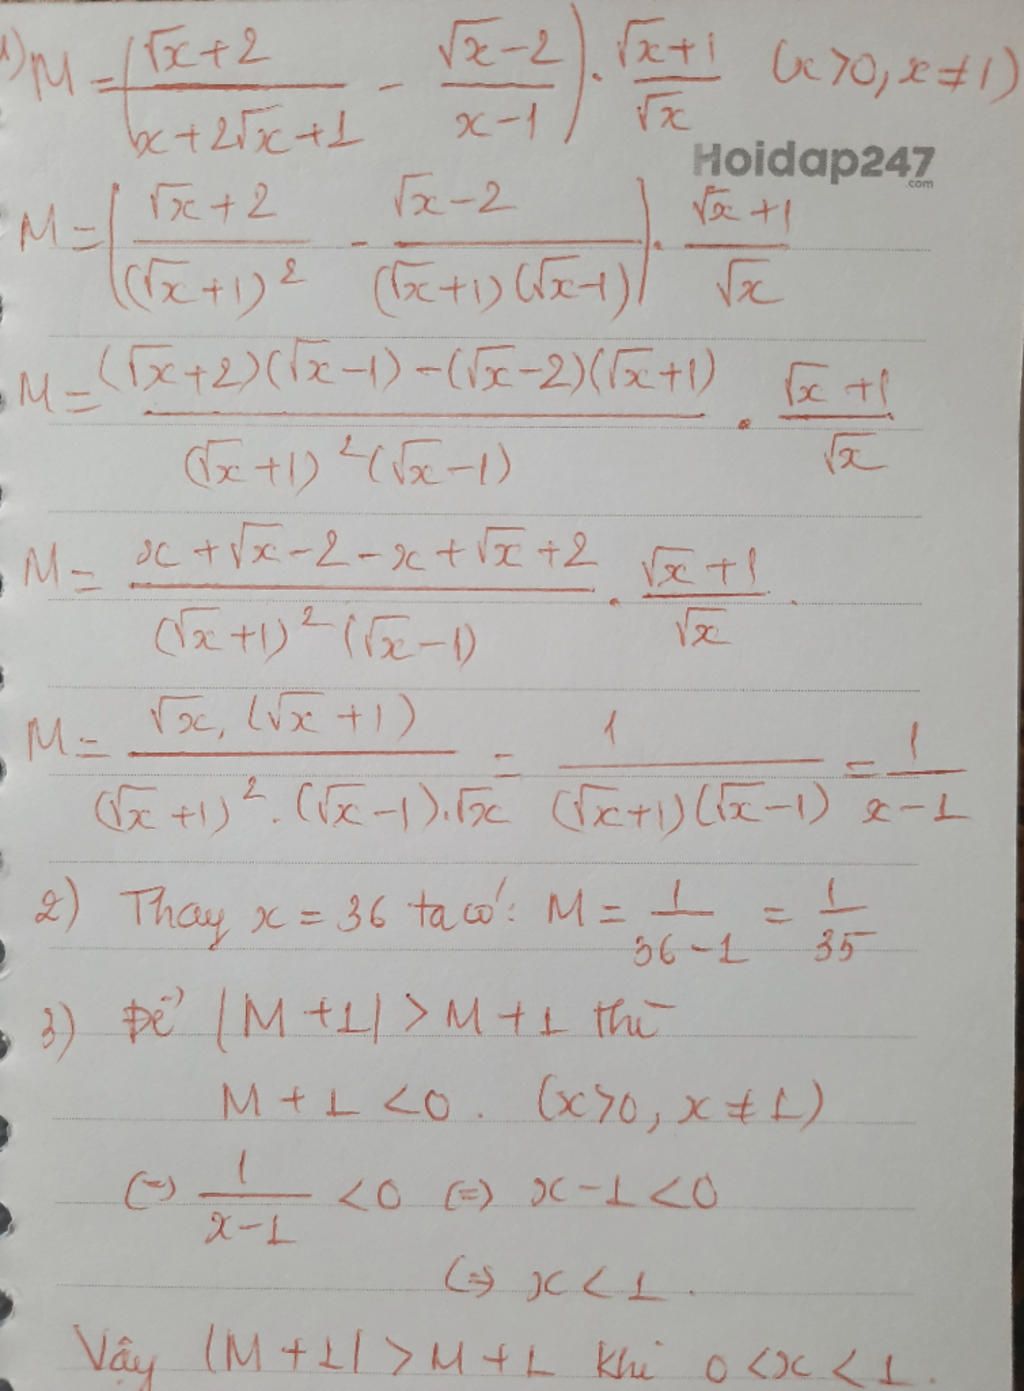 1) M = (√x+2 / x+2√x+1 - √x-2 / x-1) . √x+1 / √x (x>0, x≠1)
Hoidap247
.com
M = (√x+2 / (√x+1)² - √x-2 / (√x+1)(√x-1)) . √x+1 / √x
M = (√x+2)(√x-1)-(√x-2)(√x+1) / (√x+1)²(√x-1) . √x+1 / √x
M = x+√x-2-x+√x+2 / (√x+1)²(√x-1) . √x+1 / √x .
M = √x.(√x+1) / (√x+1)².(√x-1).√x = 1 / (√x+1)(√x-1) = 1 / x-1
2) Thay x = 36 ta có: M = 1 / 36-1 = 1 / 35
3) Để |M+1| > M+1 thì
M+1 <0. (x>0, x≠1)
(=) 1 / x-1 <0 (=) x-1<0
(=) x<1.
Vậy |M+1| > M+1 khi 0<x<1.